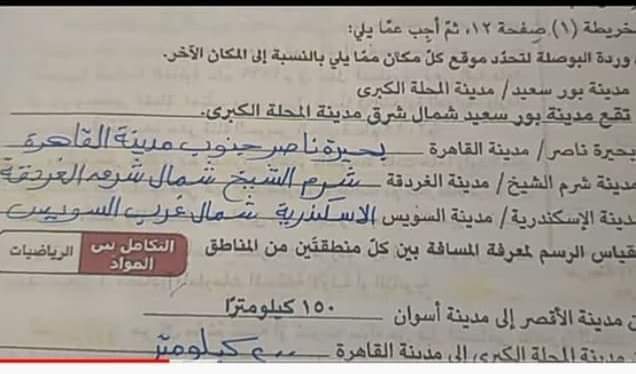 خريطة (١) صفحة ١٢، ثم أجب عمّا يلي:
وردة البوصلة لتحدّد موقع كلّ مكان ممّا يلي بالنسبة إلى المكان الآخر.
مدينة بور سعيد/ مدينة المحلة الكبرى
تقع مدينة بور سعيد شمال شرق مدينة المحلة الكبرى.
بحيرة ناصر/ مدينة القاهرة بحيرة ناصر جنوب مدينة القاهرة
مدينة شرم الشيخ/ مدينة الغردقة شرم الشيخ شمال شرق الغردقة
مدينة الإسكندرية/ مدينة السويس الاسكندرية شمال غرب السويس
مقياس الرسم لمعرفة المسافة بين كلّ منطقتين من المناطق
التكامل بين المواد الرياضيات
مدينة الأقصر إلى مدينة أسوان ١٥٠ كيلومترًا
مدينة المحلة الكبرى إلى مدينة القاهرة كيلومتر